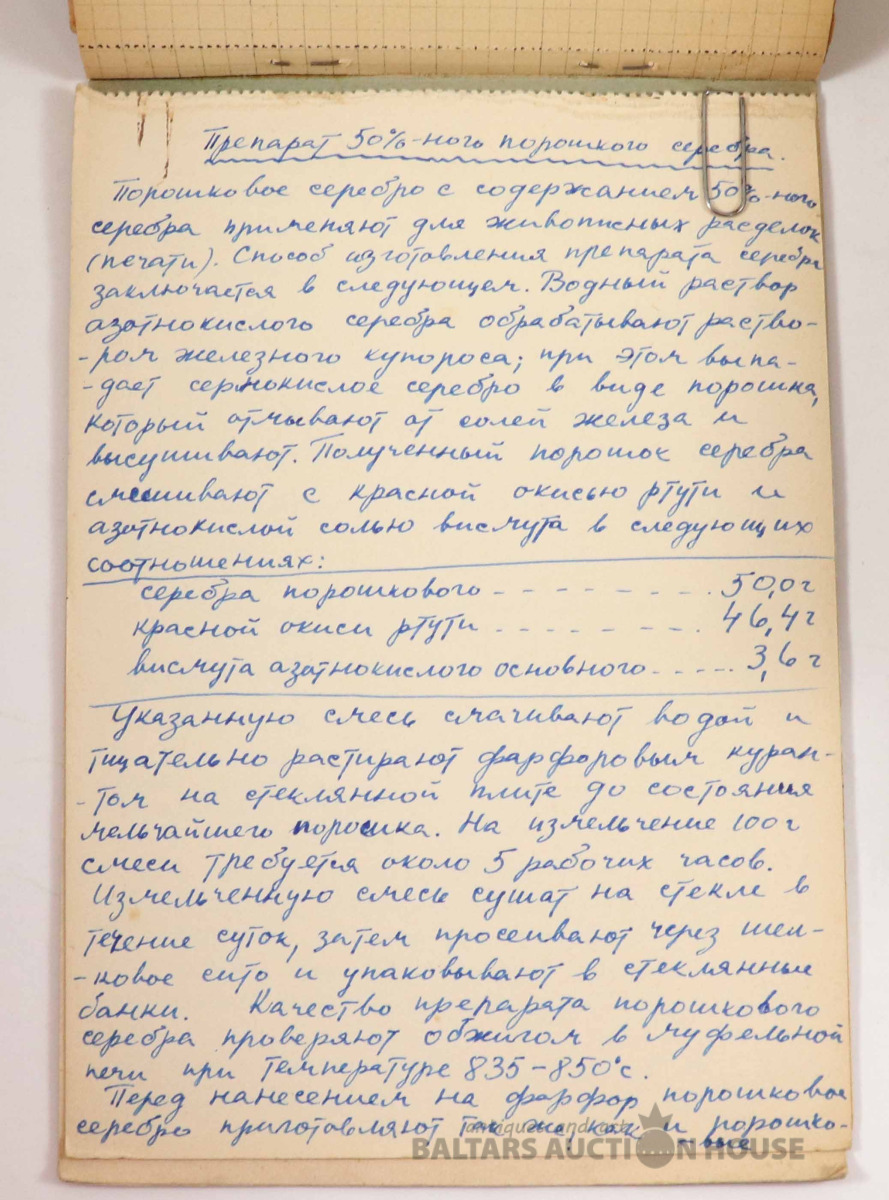 Препарат 50%-ного порошкого серебра.
Порошковое серебро с содержанием 50%-ного
серебра применяют для живописных расделок
(печати). Способ изготовления препарата серебра
заключается в следующем. Водный раствор
азотнокислого серебра обрабатывают раство-
-ром железного купороса; при этом выпа-
-дает сернокислое серебро в виде порошка,
который отмывают от солей железа и
высушивают. Полученный порошок серебра
смешивают с красной окисью ртути и
азотнокислой солью висмута в следующих
соотношениях:
серебра порошкового - - - - - - - - . 50,0 г
красной окиси ртути - - - - - - - . 46,4 г
висмута азотнокислого основного - - - - . . 3,6 г
Указанную смесь смачивают водой и
тщательно растирают фарфоровым куран-
-том на стеклянной плите до состояния
мельчайшего порошка. На измельчение 100 г
смеси требуется около 5 рабочих часов.
Измельченную смесь сушат на стекле в
течение суток, затем просеивают через шел-
-ковое сито и упаковывают в стеклянные
банки. Качество препарата порошкового
серебра проверяют обжигом в муфельной
печи при температуре 835-850°с.
Перед нанесением на фарфор порошковое
серебро приготовляют так же, как и порошко-
-вые
antiques and art
BALTARS AUCTION HOUSE